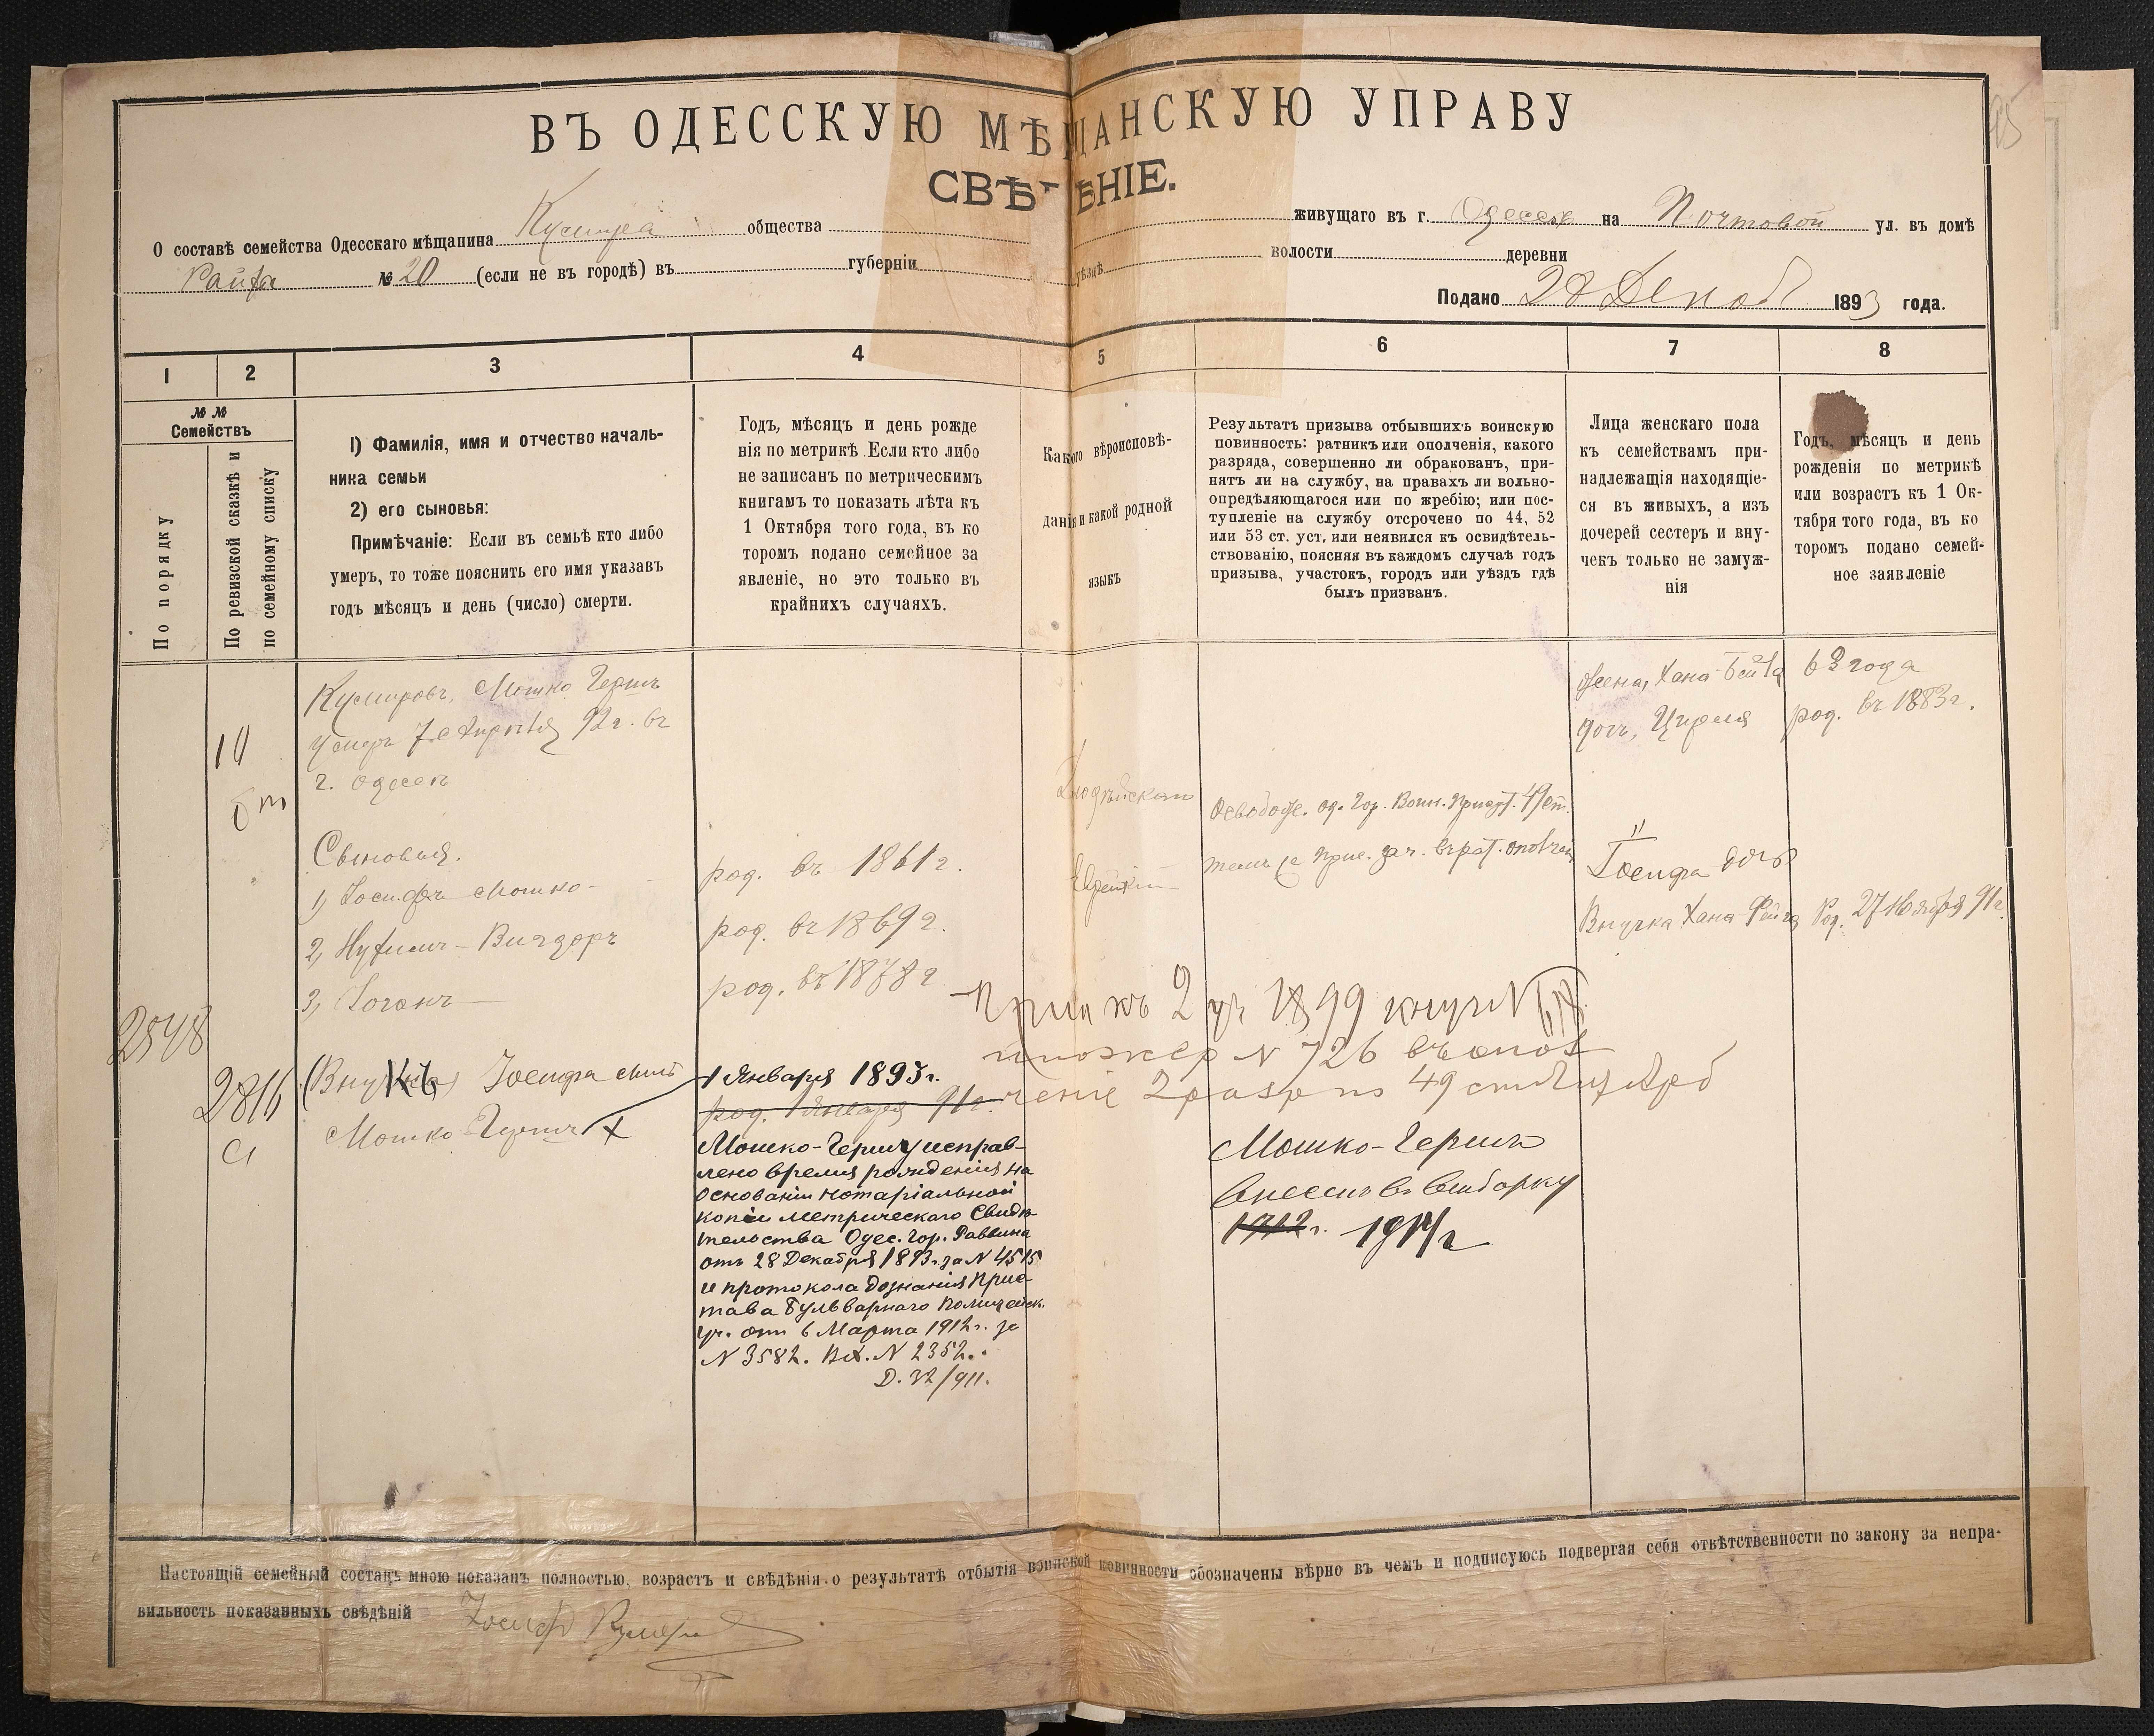 ВЪ ОДЕССКУЮ МѢЩАНСКУЮ УПРАВУ
СВѢДѢНІЕ.
О составѣ семейства Одесскаго мѣщанина общества живущаго въ г. Одессѣ на Почтовой ул. въ домѣ
№ 20 (если не въ городѣ) въ губерніи уѣздѣ волости деревни
Подано 28 Декаб 1893 года.
1 2 3 4 5 6 7 8
№ №
Семействъ
По порядку
По ревизской сказкѣ и
по семейному списку
1) Фамилія, имя и отчество началь-
ника семьи
2) его сыновья:
Примѣчаніе: Если въ семьѣ кто либо
умеръ, то тоже пояснить его имя указавъ
годъ мѣсяцъ и день (число) смерти.
Годъ, мѣсяцъ и день рожде
нія по метрикѣ. Если кто либо
не записанъ по метрическимъ
книгамъ то показать лѣта къ
1 Октября того года, въ ко
торомъ подано семейное за
явленіе, но это только въ
крайнихъ случаяхъ.
Какого вѣроисповѣ-
данія и какой родной
языкъ
Результатъ призыва отбывшихъ воинскую
повинность: ратникъ или ополченія, какого
разряда, совершенно ли обракованъ, при-
нятъ ли на службу, на правахъ ли вольно-
опредѣляющагося или по жребію; или пос-
тупленіе на службу отсрочено по 44, 52
или 53 ст. уст. или неявился къ освидѣтель-
ствованію, поясняя въ каждомъ случаѣ годъ
призыва, участокъ, городъ или уѣздъ гдѣ
былъ призванъ.
Лица женскаго пола
къ семействамъ при-
надлежащія находящіе-
ся въ живыхъ, а изъ
дочерей сестеръ и вну-
чекъ только не замуж-
нія
Годъ, мѣсяцъ и день
рожденія по метрикѣ
или возрастъ къ 1 Ок-
тября того года, въ ко
торомъ подано семей-
ное заявленіе
Мошко Гершъ
92 г. въ
г. Одессѣ
Жена, Хана-Бейла 63 года
дочь, род. въ 1883 г.
Сыновья.
1) Іосифъ Мошко- род. въ 1861 г.
2, род. въ 1869 г.
3, род. въ 1878 г.
Іудейскаго
Еврейскій
Освобожд. од. Гор. Воин. Присут. 49 ст.
Іосифа дочь
Внучка Хана Род. 27 Ноября 91 г.
2 уч 1899
N 726 въ опол
ченіе 2 разр по 49 ст
2548
2816
(Внукъ) Іосифа сынъ
Мошко-Гершъ X
1 Января 1893 г.
род. 1 Января 91 г.
Мошко-Гершу исправ-
лено время рожденія на
основаніи нотаріальной
копіи метрическаго Свидѣ-
тельства Одес. Гор. Раввина
отъ 28 Декабря 1893 г. за N 4515
и протокола дознанія Прис-
тава Бульварнаго Полицейск.
уч. отъ 6 Марта 1912 г. за
N 3582. Вх. N 2352.
Д. 32/911.
Мошко-Гершъ
внесенъ въ выборку
1912 г. 1914 г
Настоящій семейный составъ мною показанъ полностью, возрастъ и свѣдѣнія о результатѣ отбытія воинской повинности обозначены вѣрно въ чемъ и подписуюсь подвергая себя отвѣтственности по закону за непра-
вильность показанныхъ свѣдѣній Іосифъ